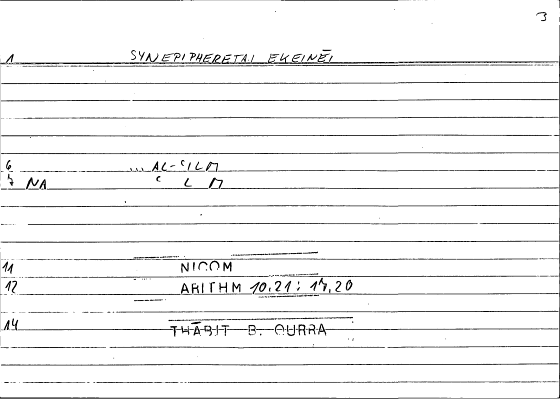 3
1 SYNEPIPHERETAI EKEINĒI
6 ... AL-ʿILM
7 NA ʿLM
11 NICOM
12 ARITHM 10,21; 17,20
14 THĀBIT B. QURRA